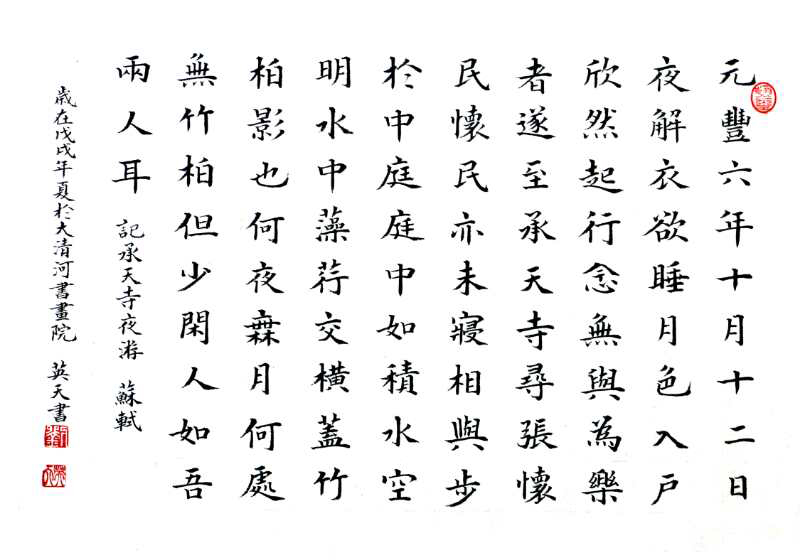 元豐六年十月十二日
夜解衣欲睡月色入戶
欣然起行念無與為樂
者遂至承天寺尋張懷
民懷民亦未寢相與步
於中庭庭中如積水空
明水中藻荇交橫蓋竹
柏影也何夜無月何處
無竹柏但少閑人如吾
兩人耳 記承天寺夜游 蘇軾
歲在戊戌年夏於大清河書畫院 英天書